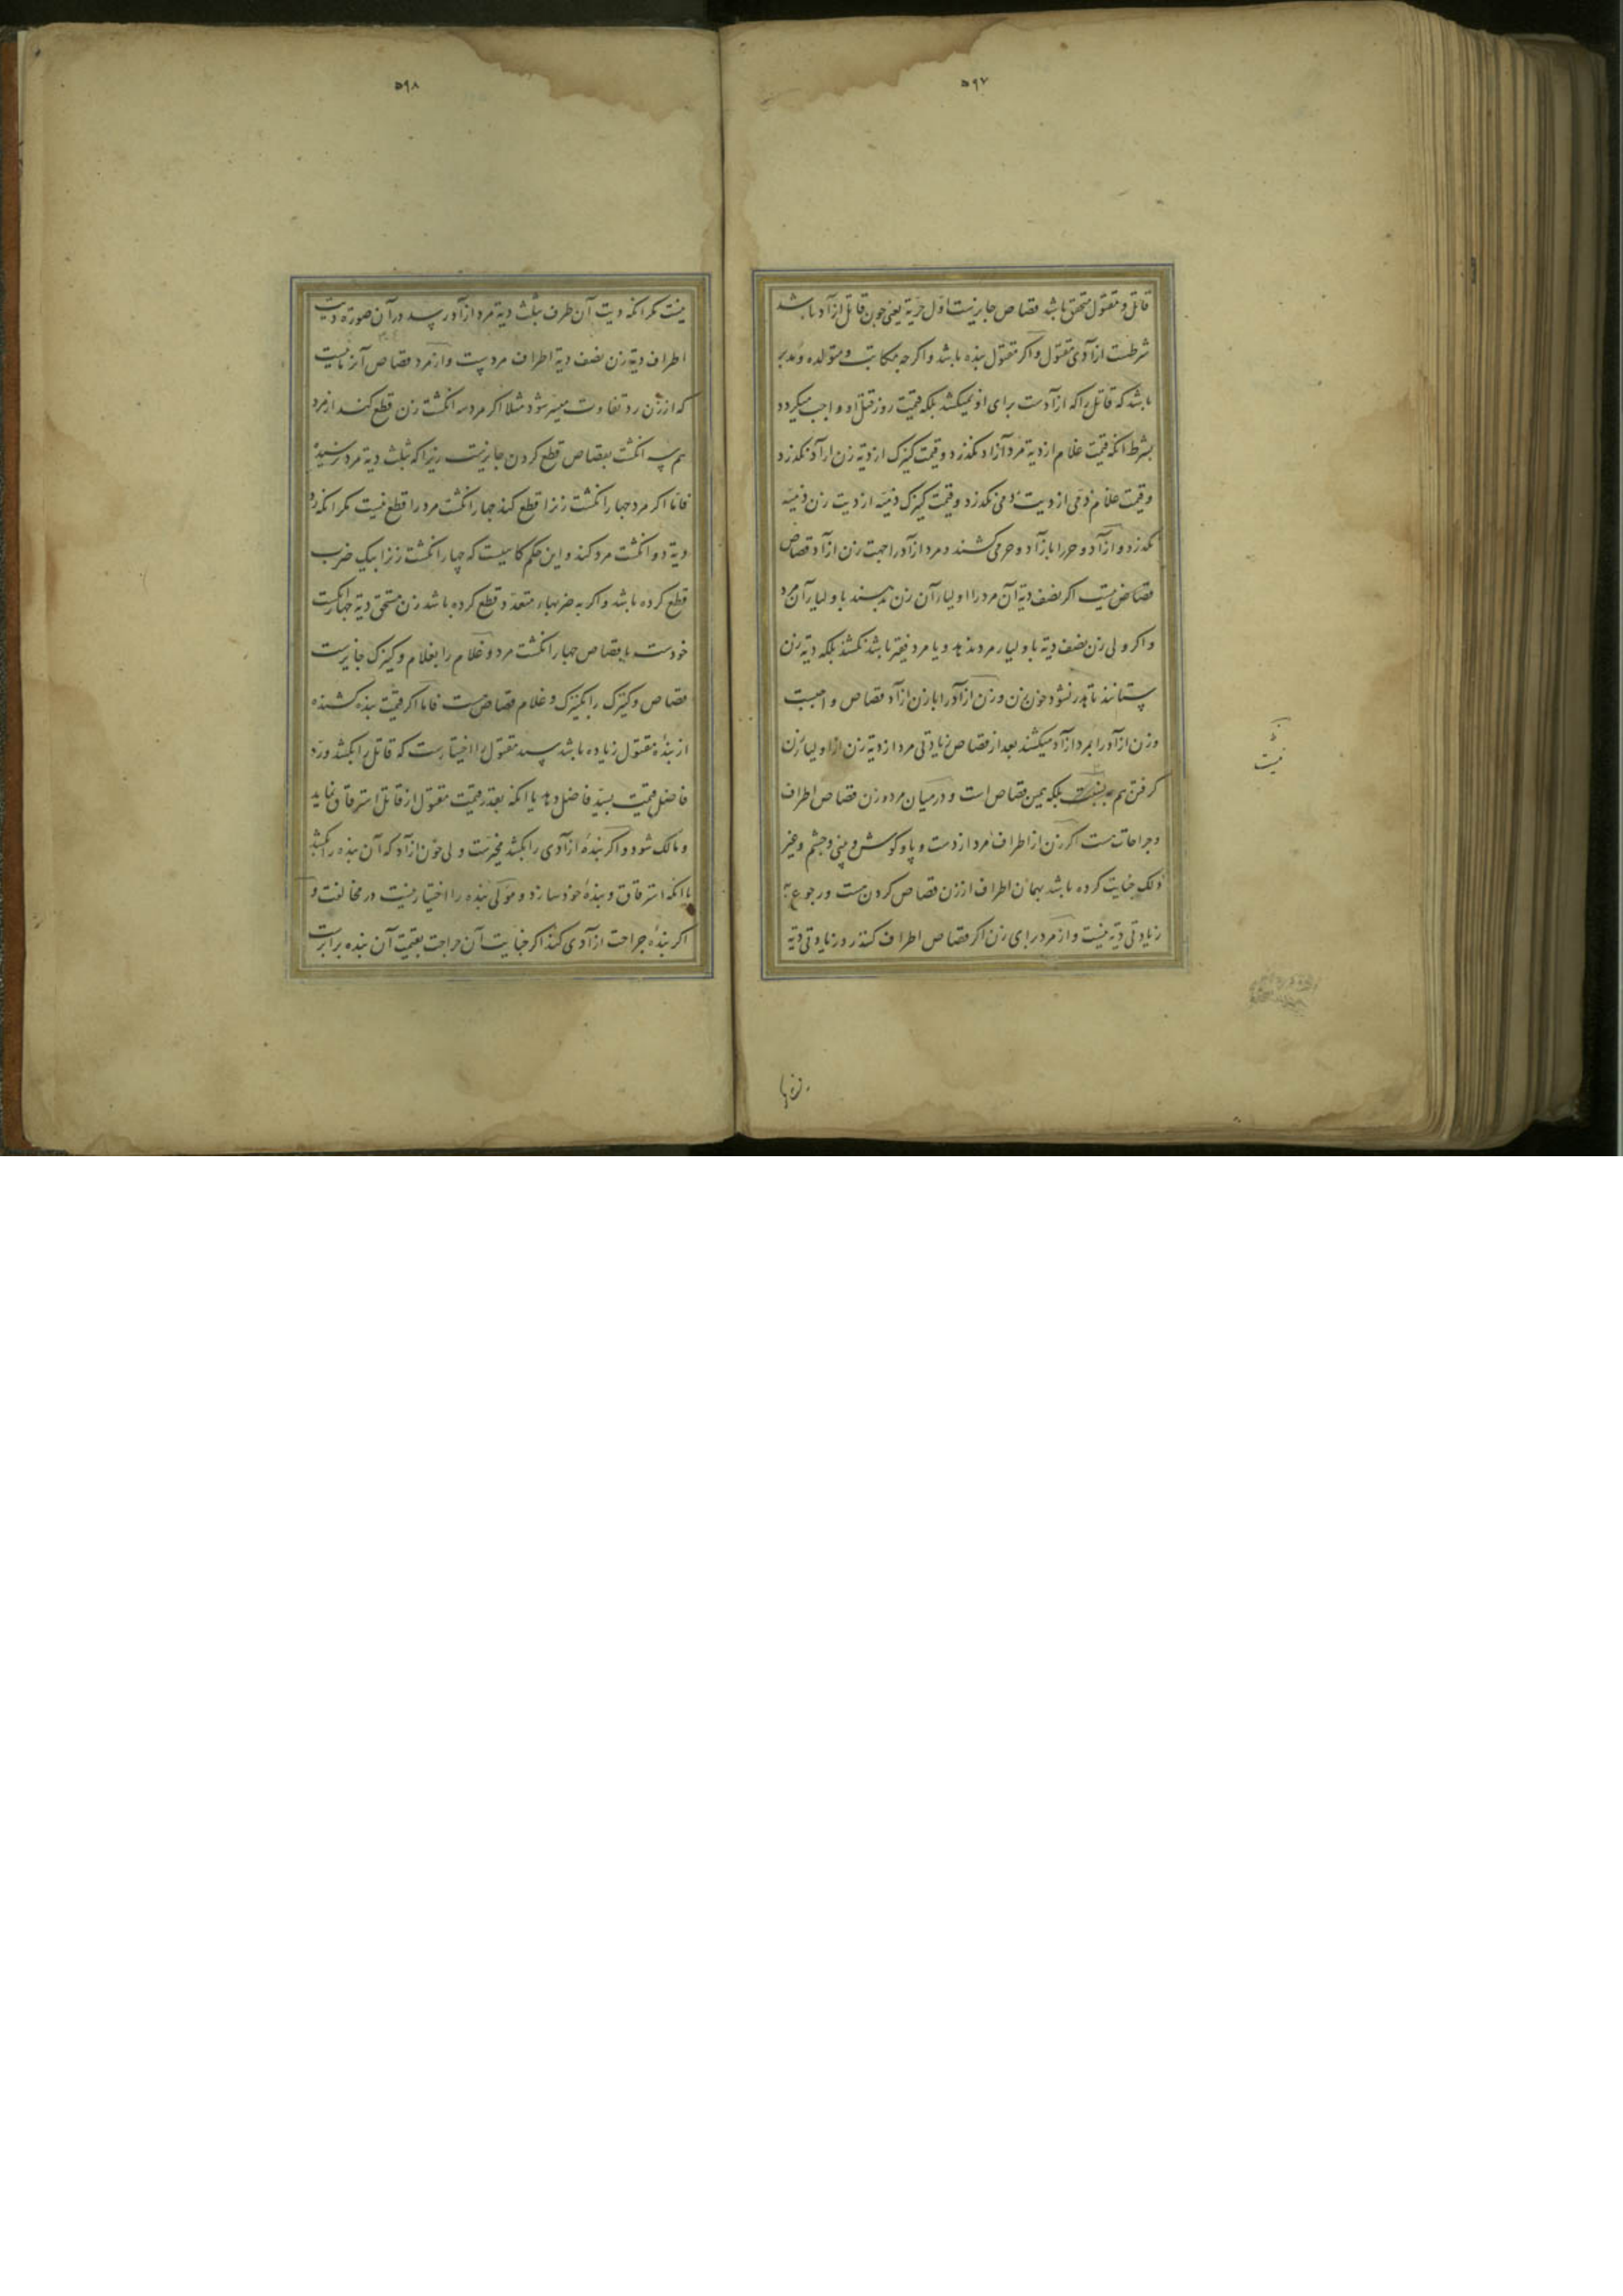 ۵۹۷
قاتل و مقتول متحقق باشد قصاص جایز نیست اول حریة یعنی چون قاتل ازآد باشد
شرطست ازآدی مقتول و اکر مقتول بنده باشد و اکر چه مکاتب و متولده و مدبر
باشد که قاتل را که ازآدست برای او نمیکشند بلکه قیمت روز قتل او واجب میکردد
بشرط انکه قیمت غلام از دیة مرد آزاد نکذرد و قیمت کنیزک از دیة زن ازآد نکذرد
و قیمت غلام ذمی از دیت ذمی نکذرد و قیمت کنیزک ذمیه از دیت زن ذمیه
نکذرد و ازآد و حر را بازآد و حر می کشند و مرد ازآد را جهت زن ازآد قصاص
قصاص اکر نصف دیة آن مرد را اولیاء آن زن بدهند باولیاء آن مرد
و اکر ولی زن نصف دیة باولیاء مرد ندهد و یا مرد فقیر باشد نکشند بلکه دیة زن
بستانند تا هدر نشود خون زن و زن ازآد را بازن ازآد قصاص واجبست
و زن ازآد را بمرد ازآد میکشند بعد از قصاص زیادتی مرد از دیة زن از اولیاء زن
کرفتن هم بلکه همین قصاص است و در میان مرد و زن قصاص اطراف
و جراحات هست اکر زن از اطراف مرد از دست و پا و کوش و بینی و چشم و غیر
ذلک جنایت کرده باشد بهمان اطراف از زن قصاص کردن هست و رجوع به
زیادتی دیة نیست و از مرد برای زن اکر قصاص اطراف کنند رد زیادتی دیة
نیست
۵۹۸
نیست مکر انکه دیت آن طرف بثلث دیة مرد ازآد رسد در آن صورة دیت
اطراف دیة زن نصف دیة اطراف مردست و از مرد قصاص آنزمانیست
که از زن رد تفاوت میسر شود مثلا اکر مرد سه انکشت زن قطع کند از مرد
هم سه انکشت بقصاص قطع کردن جایزست زیرا که بثلث دیة مرد نرسیده
فاما اکر مرد چهار انکشت زنرا قطع کند چهار انکشت مرد را قطع نیست مکر انکه رد
دیة دو انکشت مرد کند و این حکم کاهیست که چهار انکشت زنرا بیک ضرب
قطع کرده باشد و اکر به ضربهاء متعدد قطع کرده باشد زن مستحق دیة چهار انکشت
خودست یا قصاص چهار انکشت مرد و غلام را بغلام و کنیزک جایزست
قصاص و کنیزک را بکنیزک و غلام قصاص هست فاما اکر قیمت بنده کشنده
از بندهٔ مقتول زیاده باشد سید مقتول را اختیارست که قاتل را بکشد و رد
فاضل قیمت بسید فاضل دهد یا انکه بقدر قیمت مقتول از قاتل استرقاق نماید
و مالک شود و اکر بندهٔ ازآدی را بکشد مخیرست ولی خون ازآد که آن بنده را بکشد
یا انکه استرقاق و بندهٔ خود سازد و مولی بنده را اختیار نیست در مخالفت و
اکر بنده جراحت ازآدی کند اکر جنایت آن جراحت بقیمت آن بنده برابرست